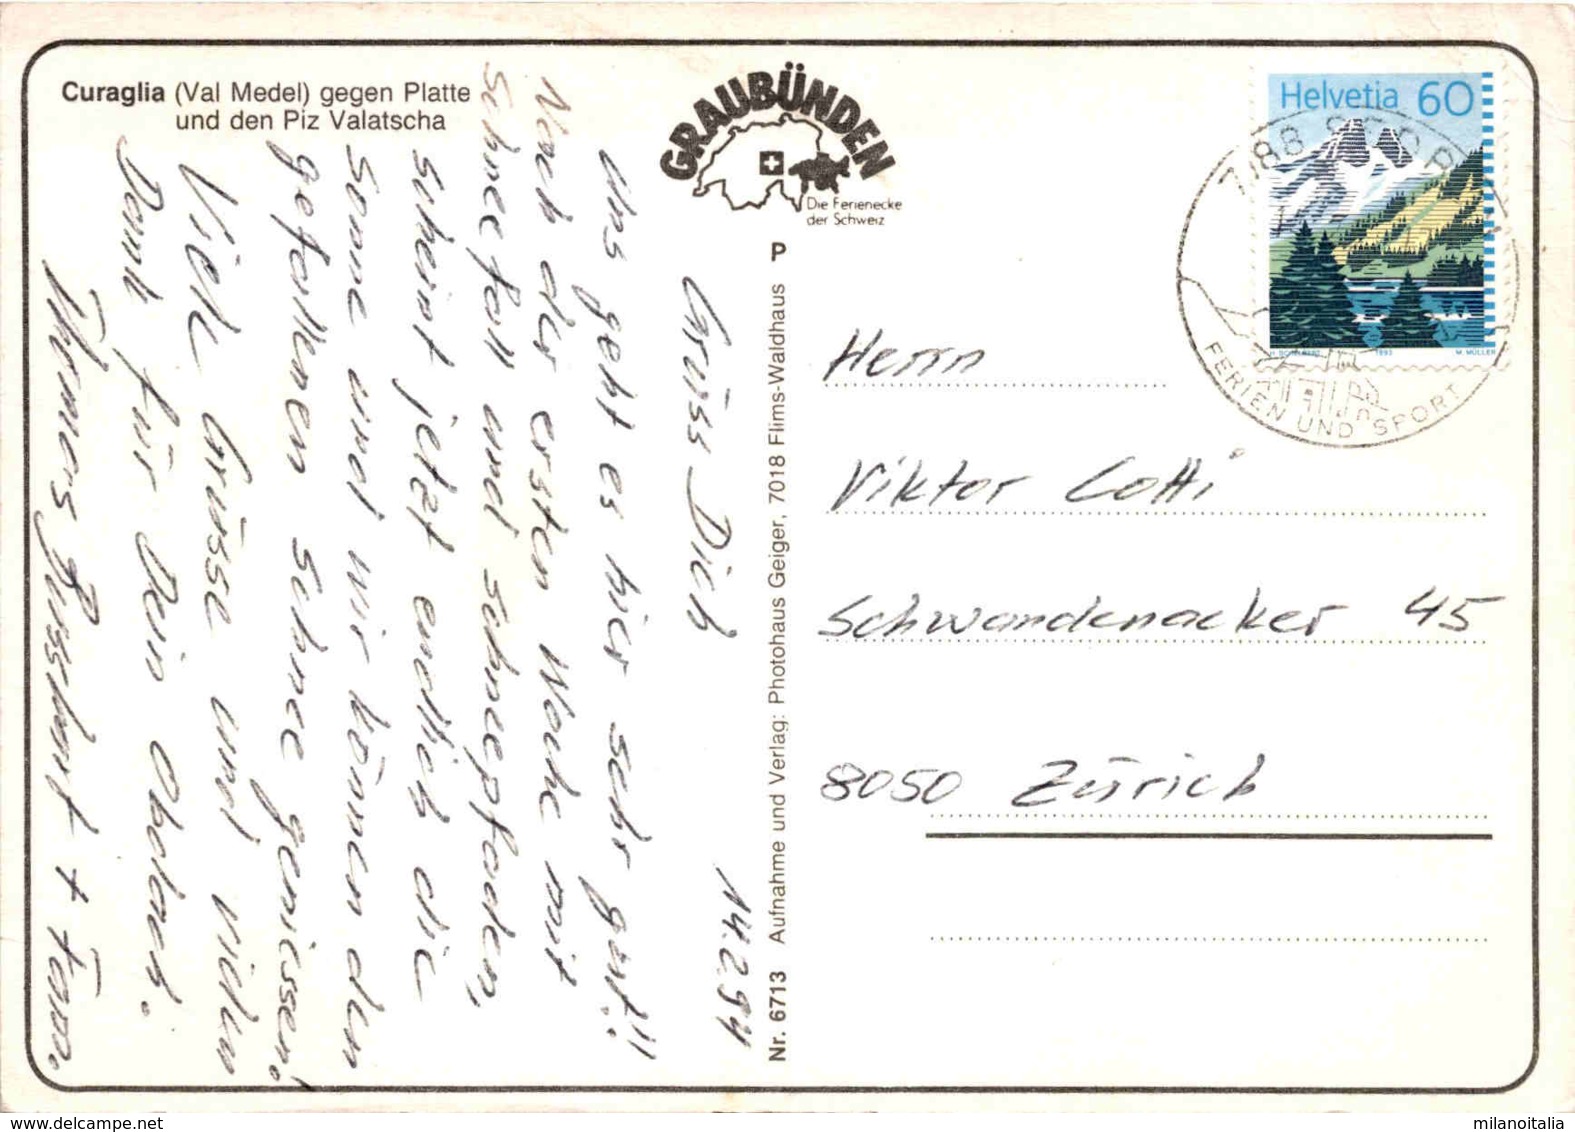 Curaglia (Val Medel) gegen Platte
und den Piz Valatscha
GRAUBÜNDEN
Die Ferienecke
der Schweiz
Helvetia 60
1993
M. MÜLLER
FERIEN UND SPORT
P
14.2.94
Grüss Dich
Uns geht es hier sehr gut!!
Nach der ersten Woche mit
Schneefall und schneepfaden,
scheint jetzt endlich die
Sonne und wir können den
gefallenen Schnee geniessen!
Viele Grüsse und vielen
Dank für Dein
Thomas + Fam.
Nr. 6713 Aufnahme und Verlag: Photohaus Geiger, 7018 Flims-Waldhaus
Herrn
Viktor Cotti
Schwandenacker 45
8050 Zürich
milanoitalia